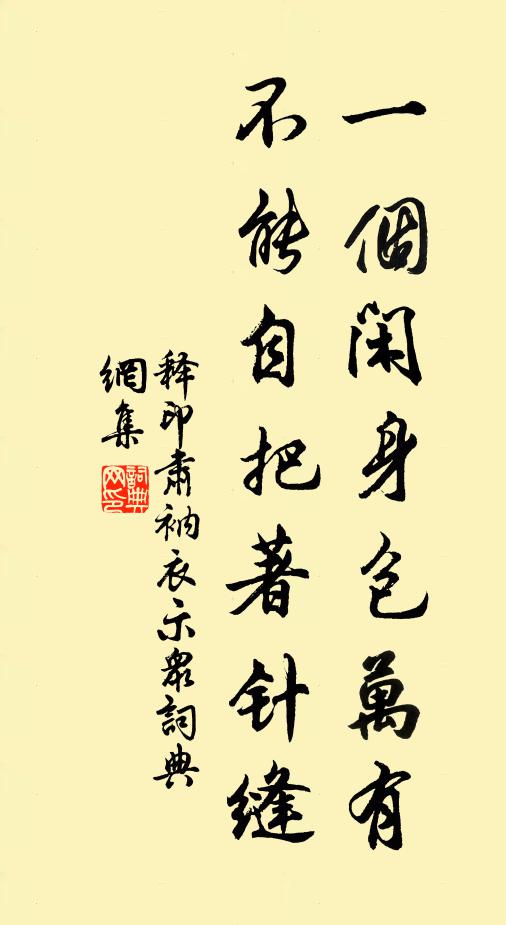 一個閑身包萬有
不能自把著针縫
释印肅衲衣示眾詞典
網集
詞典
网印